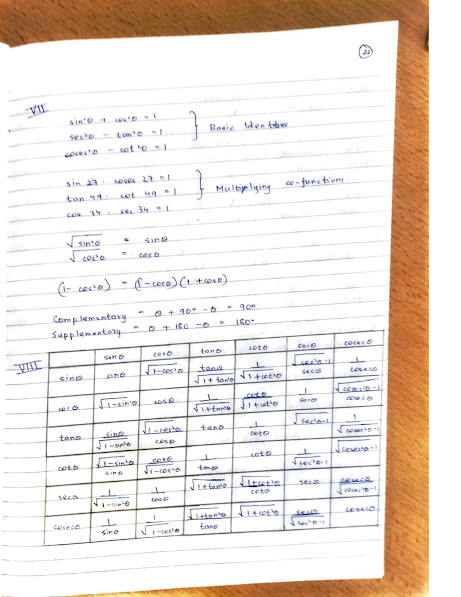 22
VII
sin²θ + cos²θ = 1
sec²θ - tan²θ = 1
cosec²θ - cot²θ = 1
Basic Identities
sin 27 . cosec 27 = 1
tan 49 . cot 49 = 1
cos 34 . sec 34 = 1
Multiplying co-functions
√sin²θ = sinθ
√cos²θ = cosθ
(1 - cos²θ) = (1 - cosθ)(1 + cosθ)
Complementary = θ + 90° - θ = 90°
Supplementary = θ + 180 - θ = 180°
VIII
sinθ cosθ tanθ cotθ secθ cosecθ
sinθ sinθ √1-cos²θ tanθ/√1+tan²θ 1/√1+cot²θ √sec²θ-1/secθ 1/cosecθ
cosθ √1-sin²θ cosθ 1/√1+tan²θ cotθ/√1+cot²θ 1/secθ √cosec²θ-1/cosecθ
tanθ sinθ/√1-sin²θ √1-cos²θ/cosθ tanθ 1/cotθ √sec²θ-1 1/√cosec²θ-1
cotθ √1-sin²θ/sinθ cosθ/√1-cos²θ 1/tanθ cotθ 1/√sec²θ-1 √cosec²θ-1
secθ 1/√1-sin²θ 1/cosθ √1+tan²θ √1+cot²θ/cotθ secθ cosecθ/√cosec²θ-1
cosecθ 1/sinθ 1/√1-cos²θ √1+tan²θ/tanθ √1+cot²θ secθ/√sec²θ-1 cosecθ